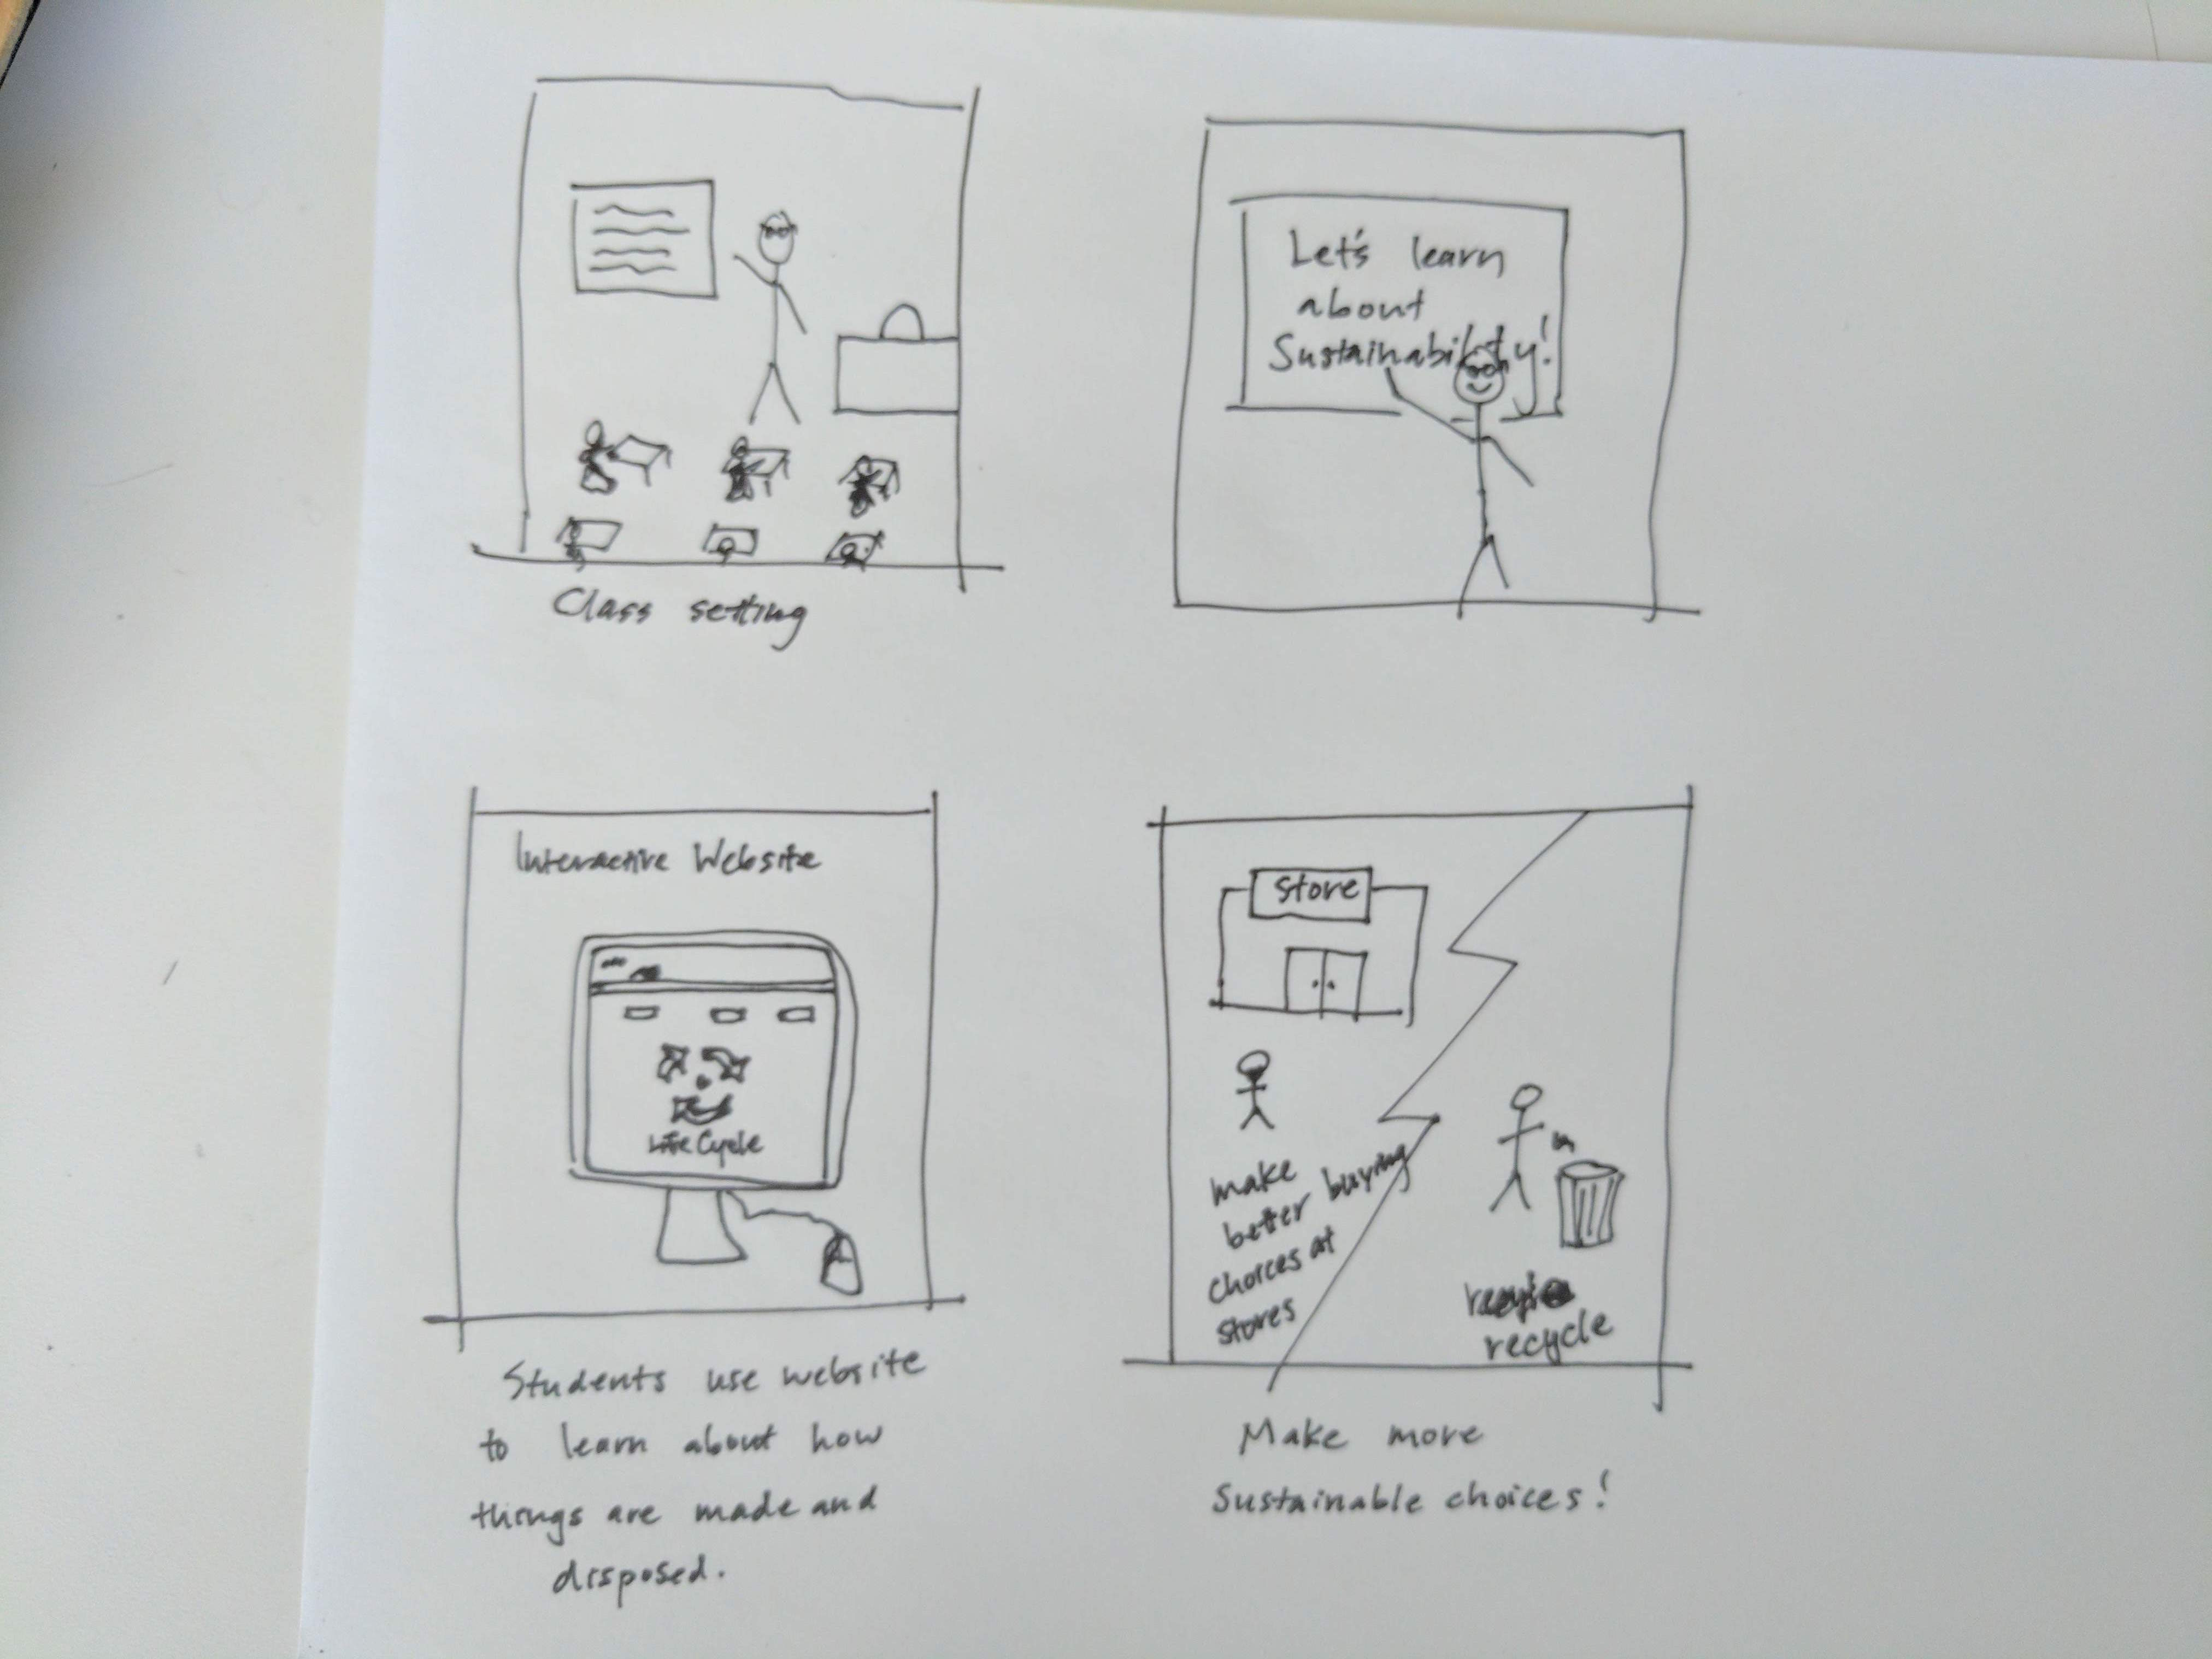 Class setting
Let's learn
about
Sustainability!
Interactive Website
Life Cycle
Students use website
to learn about how
things are made and
disposed.
Store
make
better buying
choices at
stores
recycle
Make more
Sustainable choices!